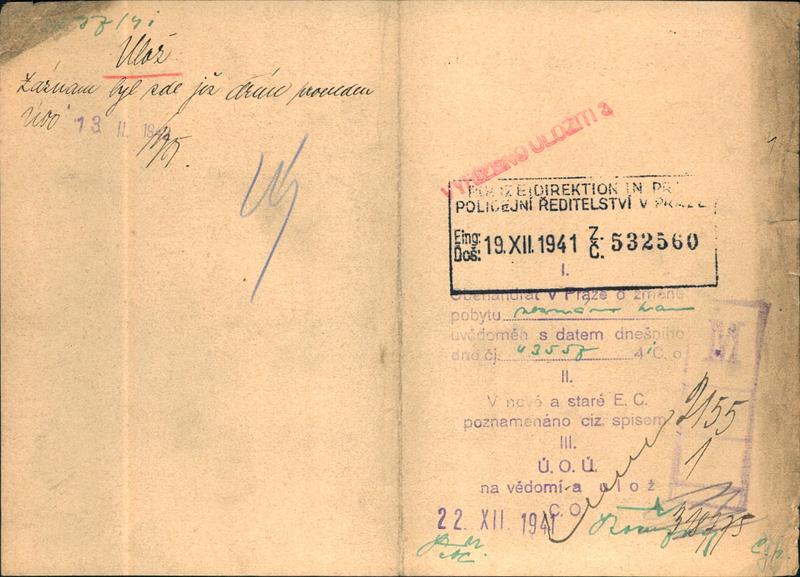 Ulož
Záznam byl zde již dříve proveden
13 II. 1942
VYŘÍZENO ULOŽITI
POLIZEIDIREKTION IN PR
POLICEJNÍ ŘEDITELSTVÍ V PRAZE
Eing: Došl: 19. XII. 1941 Z. Č. 532560
I.
v Praze o změně
pobytu
uvědoměn s datem dnešního
dne čj. 43557 41 C. o
II.
V nové a staré E. C.
poznamenáno ciz. spisem
2155
III.
1
Ú. O. Ú.
na vědomí a ulož
C. O.
22. XII. 1941